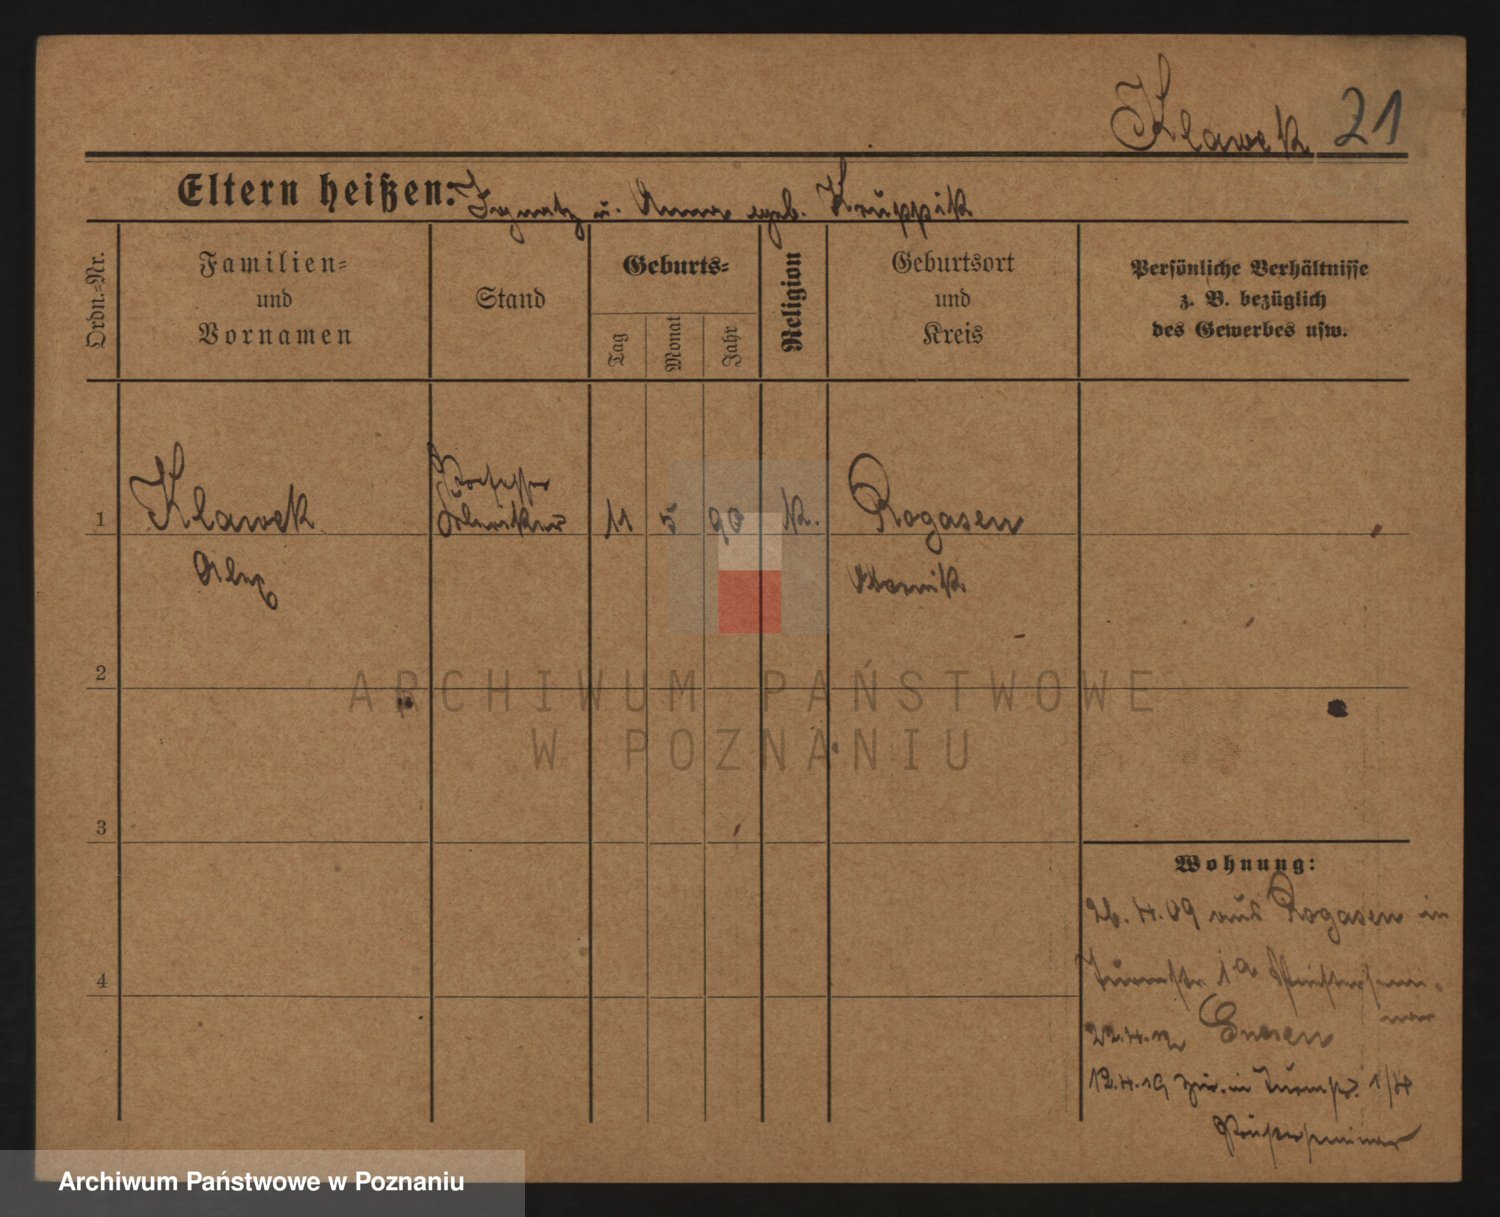 Klawek 21
Eltern heißen: Ignatz u. Anna geb. Kruppik
Ordn.-Nr.
Familien-
und
Vornamen
Stand
Geburts-
Tag
Monat
Jahr
Religion
Geburtsort
und
Kreis
Persönliche Verhältnisse
z. B. bezüglich
des Gewerbes usw.
1
Klawek
Alex
Professor
Kleriker
11 5 90 K.
Rogasen
Obornik
2
3
4
Wohnung:
26.4.09 aus Rogasen in
Turmstr 1a Priestersemi-
nar
22.4.12 Gnesen
12.4.19 in Turmstr. 1/4
Priesterseminar
ARCHIWUM PAŃSTWOWE
W POZNANIU
Archiwum Państwowe w Poznaniu